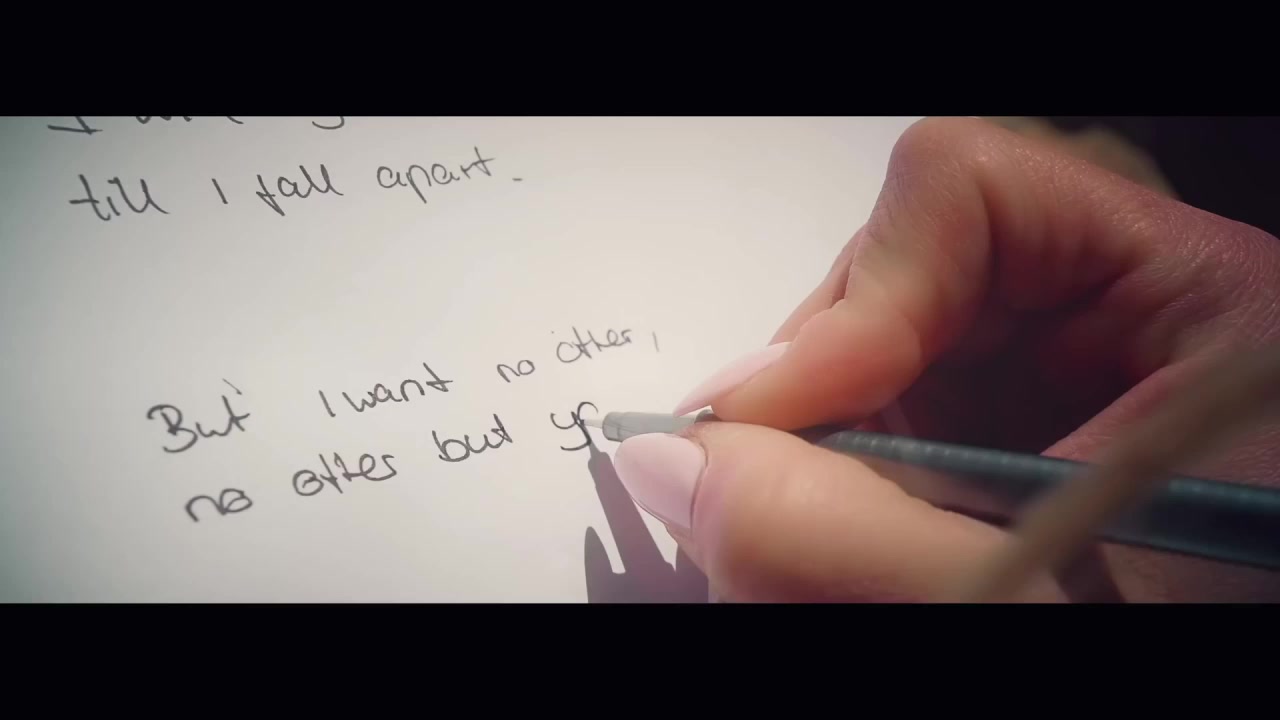 I
till I fall apart.
But I want no other,
no other but yo